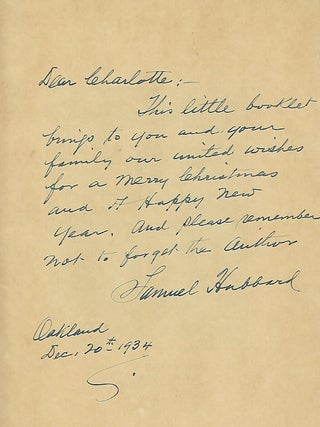 Dear Charlotte:-
This little booklet
brings to you and your
family our united wishes
for a Merry Christmas
and a Happy New
Year. And please remember
not to forget the author
Samuel Hubbard
Oakland
Dec. 20th 1934
S.